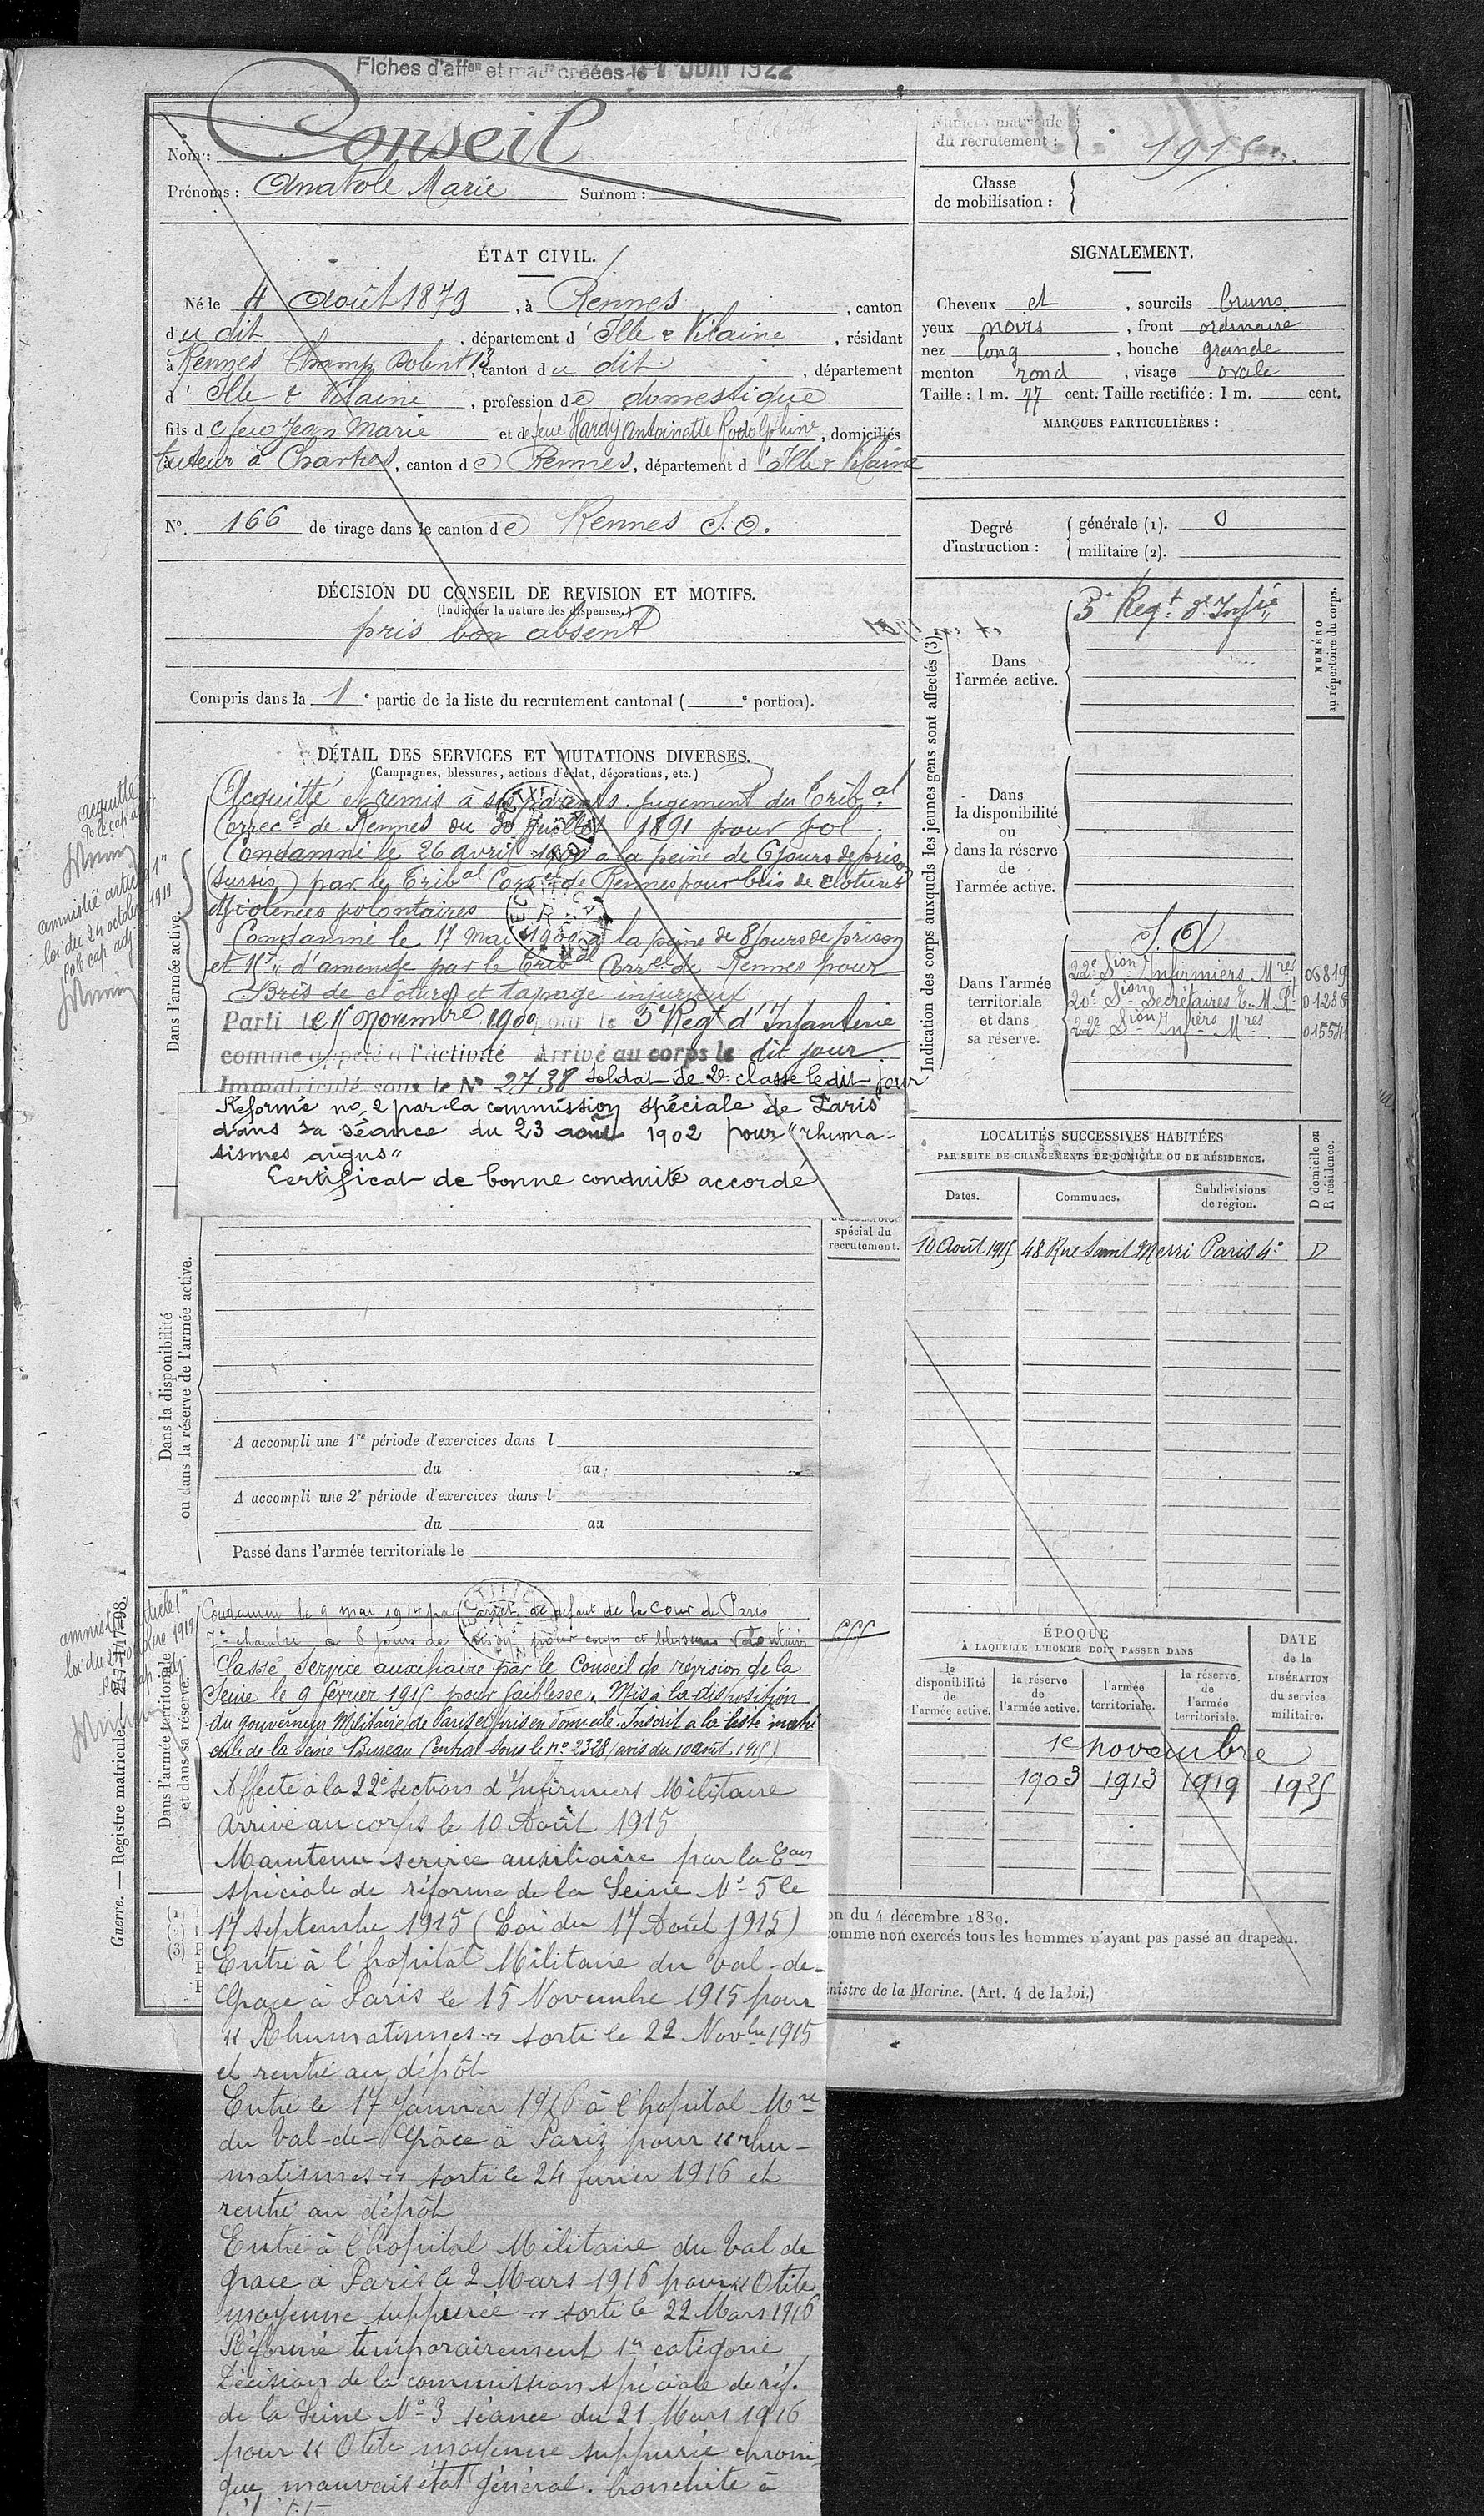 Fiches d'affon et matre créées le 1 Juin 1922
Nom : Conseil
Prénoms : Anatole Marie Surnom :
Numéro matricule du recrutement : 1915
Classe de mobilisation :
ÉTAT CIVIL.
Né le 4 Août 1879, à Rennes, canton
du dit, département d'Ille & Vilaine, résidant
à Rennes Champ Dolent 13, canton du dit, département
d'Ille & Vilaine, profession de domestique
fils de feu Jean Marie et de feue Hardy Antoinette Rodolphine, domiciliés
tuteur à Chartres, canton de Rennes, département d'Ille & Vilaine
N° 166 de tirage dans le canton de Rennes S.O.
SIGNALEMENT.
Cheveux et, sourcils bruns
yeux noirs, front ordinaire
nez long, bouche grande
menton rond, visage ovale
Taille : 1 m. 77 cent. Taille rectifiée : 1 m. cent.
MARQUES PARTICULIÈRES :
Degré d'instruction : générale (1). 0
militaire (2).
DÉCISION DU CONSEIL DE REVISION ET MOTIFS.
(Indiquer la nature des dispenses.)
pris bon absent
Compris dans la 1e partie de la liste du recrutement cantonal ( e portion).
DÉTAIL DES SERVICES ET MUTATIONS DIVERSES.
(Campagnes, blessures, actions d'éclat, décorations, etc.)
Dans l'armée active.
Acquitté et remis à ses parents. jugement du Tribal
Correcel de Rennes du 30 Juillet 1891 pour vol.
Condamné le 26 avril 1900 à la peine de 6 jours de prison
(sursis) par le Tribal Correl de Rennes pour bris de clôtures
& violences volontaires
Condamné le 17 mai 1900 à la peine de 8 jours de prison
et d'amende par le Tribal Correl de Rennes pour
Bris de clôture et tapage injurieux
Parti le 15 novembre 1900 pour le 3e Regt d'Infanterie
comme appelé à l'activité Arrivé au corps le dit jour
Immatriculé sous le N° 2738 soldat de 2e classe le dit jour
Réformé no 2 par la commission spéciale de Paris
dans sa séance du 23 août 1902 pour "rhuma-
tismes aigus"
Certificat de bonne conduite accordé
acquitté
amnistié article 1er
loi du 24 octobre 1919
Indication des corps auxquels les jeunes gens sont affectés (3).
NUMÉRO au répertoire du corps.
Dans l'armée active.
3e Regt d'Infie
Dans la disponibilité ou dans la réserve de l'armée active.
Dans l'armée territoriale et dans sa réserve.
S. X
22e Sion Infirmiers Mres 06819
20e Sion Secrétaires E.M.R. 01236
22e Sion Infiers Mres
LOCALITÉS SUCCESSIVES HABITÉES
PAR SUITE DE CHANGEMENTS DE DOMICILE OU DE RÉSIDENCE.
Dates. Communes. Subdivisions de région. D domicile ou R résidence.
10 Août 1915 48 Rue Saint Merri Paris 4e D
spécial du
recrutement.
Dans la disponibilité
ou dans la réserve de l'armée active.
A accompli une 1re période d'exercices dans l
du au
A accompli une 2e période d'exercices dans l
du au
Passé dans l'armée territoriale le
Dans l'armée territoriale
et dans sa réserve.
Condamné le 9 mai 1914 par arrêt de défaut de la cour de Paris
7e chambre à 8 jours de prison pour coups et blessures volontaires
Classé Service auxiliaire par le Conseil de révision de la
Seine le 9 février 1915 pour faiblesse. Mis à la disposition
du gouverneur Militaire de Paris et pris en domicile. Inscrit à la liste matri
cule de la Seine Bureau Central sous le no 2328 (avis du 10 août 1915)
Affecté à la 22e section d'Infirmiers Militaire
Arrivé au corps le 10 Août 1915
Maintenu service auxiliaire par la Con
spéciale de réforme de la Seine No 5 le
17 septembre 1915 (Loi du 17 Août 1915)
Entré à l'hopital Militaire du Val-de-
Grace à Paris le 15 Novembre 1915 pour
"Rhumatismes" sorti le 22 Novbre 1915
et rentré au dépôt
Entré le 17 Janvier 1916 à l'hopital Mre
du Val-de-Grâce à Paris pour "rhu-
matismes" sorti le 24 février 1916 et
rentré au dépôt
Entré à l'hopital Militaire du Val de
grace à Paris le 2 Mars 1916 pour "Otite
moyenne suppurée" sorti le 22 Mars 1916
Réformé temporairement 1re catégorie
Décision de la commission spéciale de réf.
de la Seine No 3 séance du 21 Mars 1916
pour "Otite moyenne suppurée chroni
que mauvais état général. bronchite à
amnistié article 1er
loi du 24 octobre 1919
ÉPOQUE
À LAQUELLE L'HOMME DOIT PASSER DANS
la disponibilité de l'armée active. la réserve de l'armée active. l'armée territoriale. la réserve de l'armée territoriale.
DATE de la LIBÉRATION du service militaire.
1e novembre
1903 1913 1919 1925
on du 4 décembre 1889.
comme non exercés tous les hommes n'ayant pas passé au drapeau.
nistre de la Marine. (Art. 4 de la loi.)
Guerre. — Registre matricule. — 247-117-98.